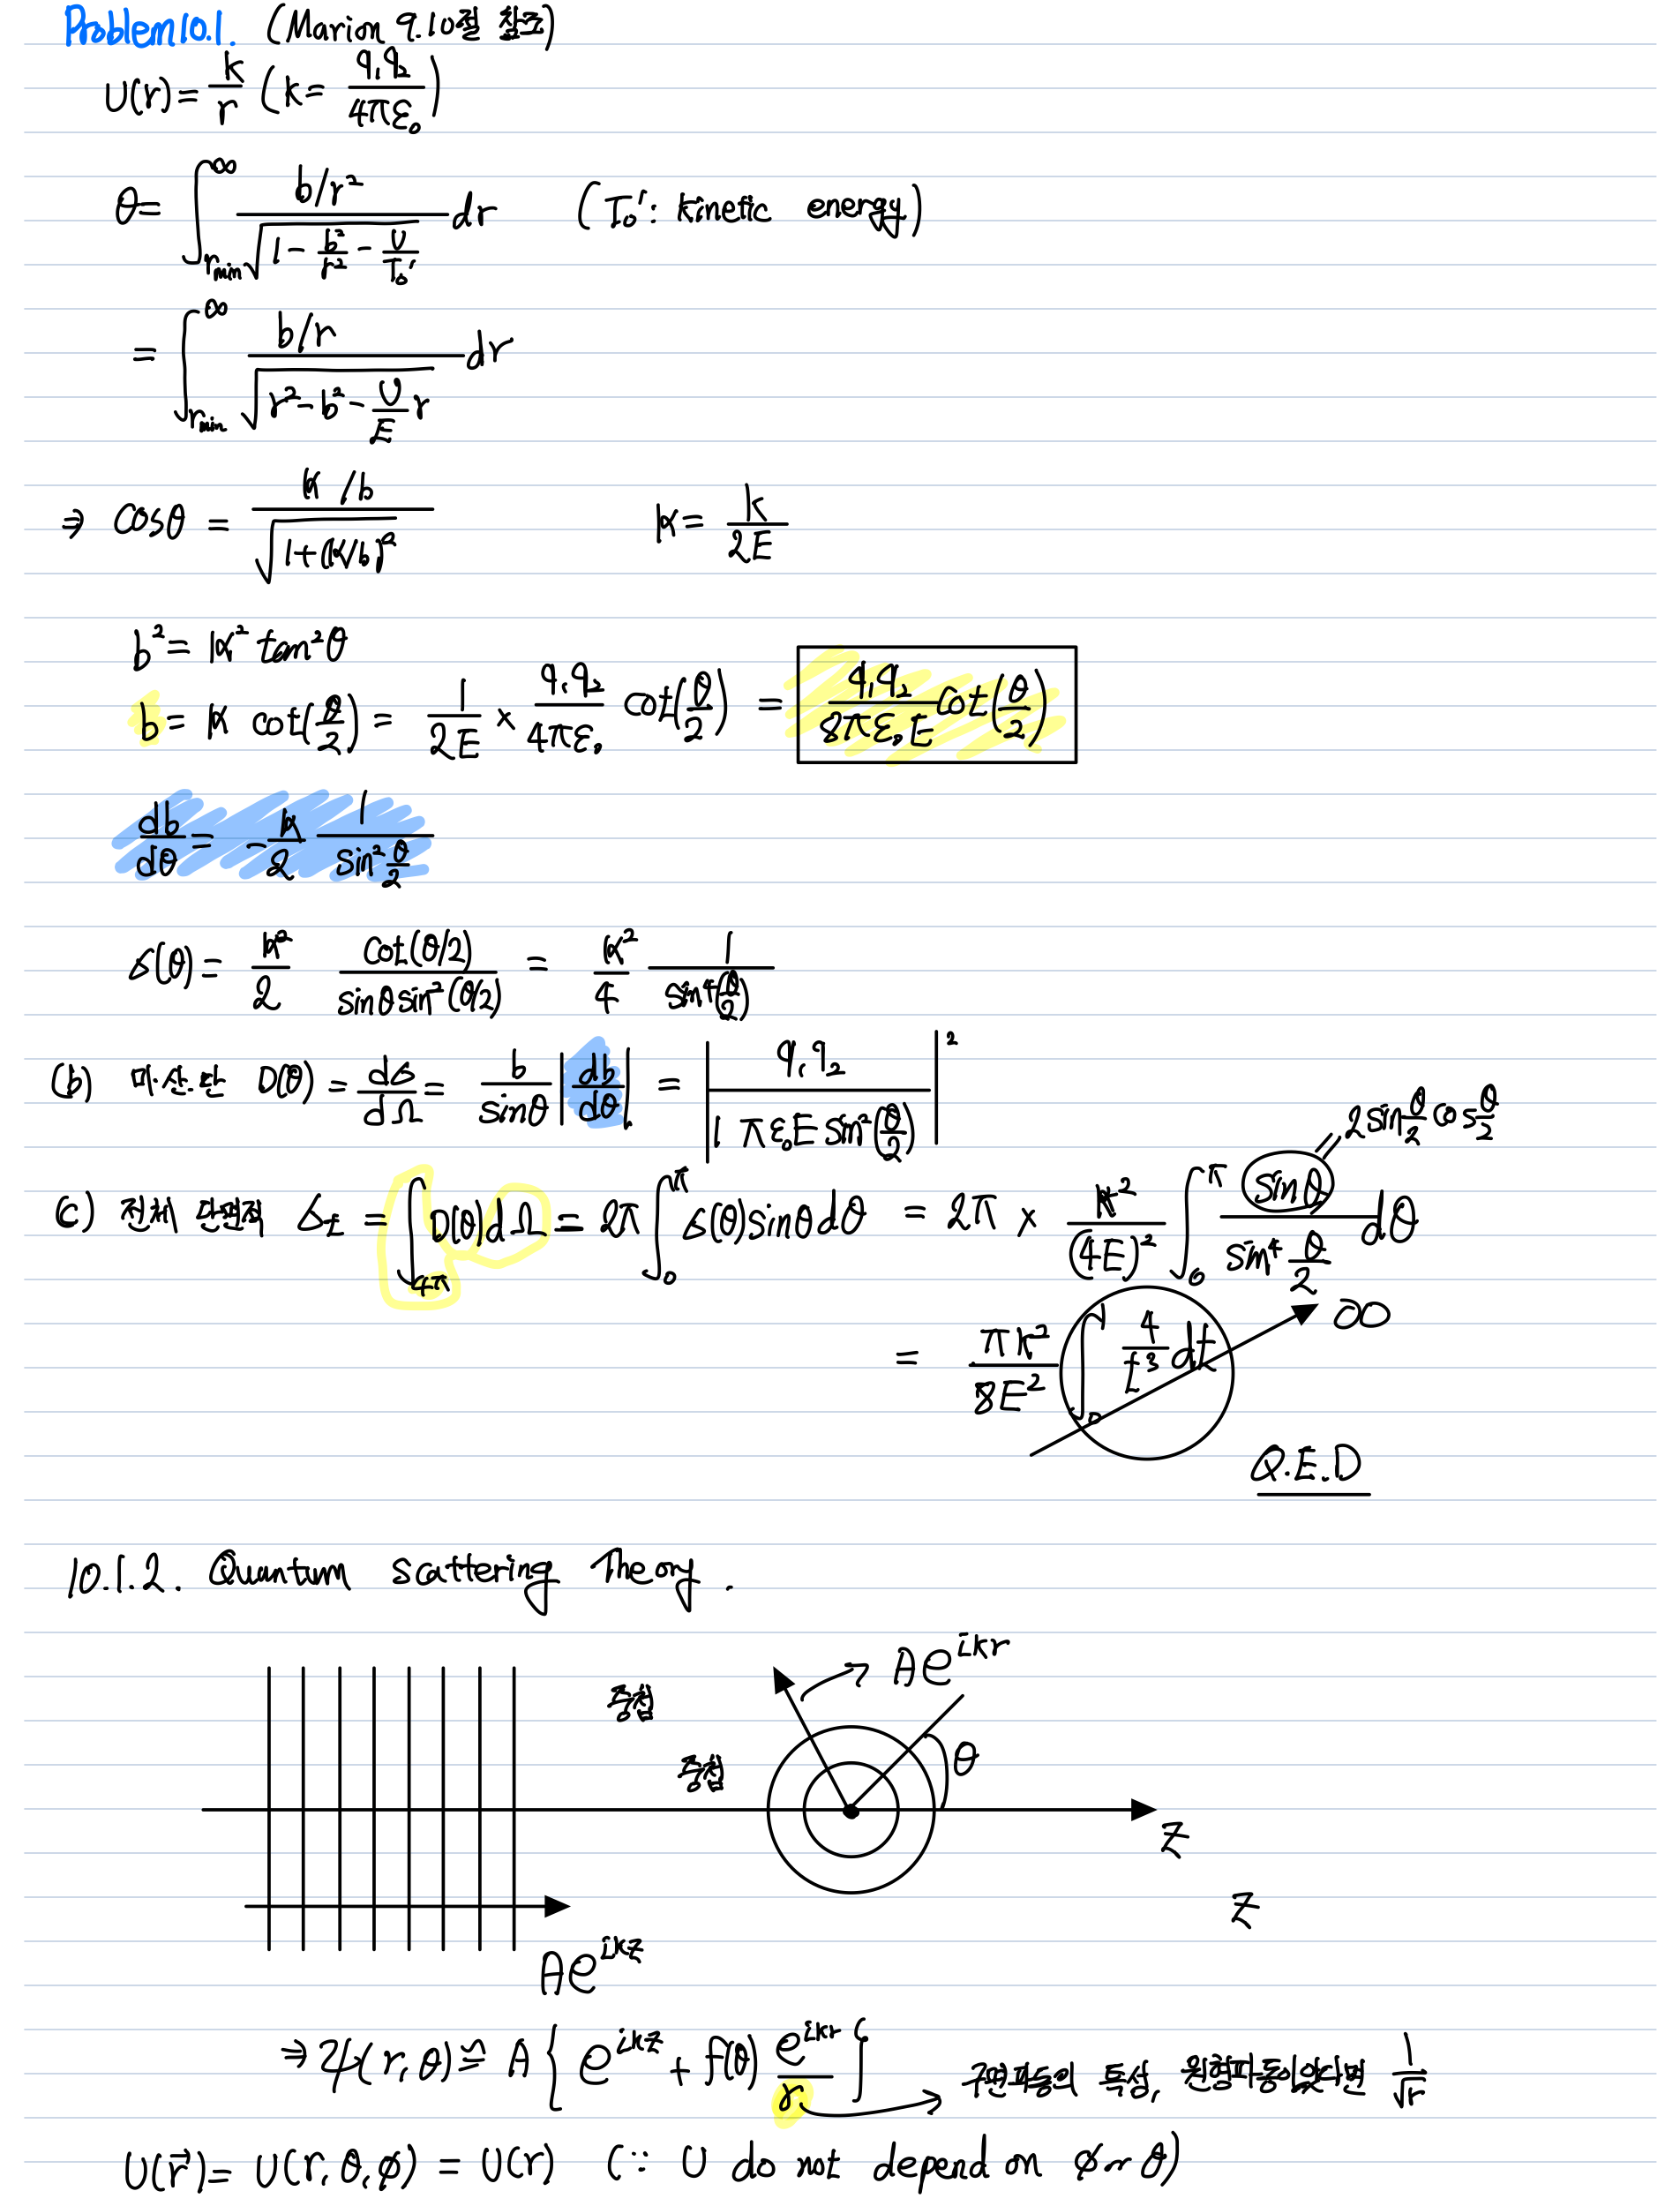 Problem 10.1. (Marion 9.10절 참조)
U(r) = k/r (k = q₁q₂/4πε₀)
θ = ∫_{r_min}^{∞} (b/r²)/√(1 - b²/r² - U/T₀') dr (T₀': kinetic energy)
= ∫_{r_min}^{∞} (b/r)/√(r² - b² - (U/E)r) dr
⇒ cosθ = (κ/b)/√(1+(κ/b)²) κ = k/2E
b² = κ² tan²θ
b = κ cot(θ/2) = 1/2E × q₁q₂/4πε₀ cot(θ/2) = q₁q₂/8πε₀E cot(θ/2)
db/dθ = -κ/2 1/sin²(θ/2)
σ(θ) = κ²/2 cot(θ/2)/(sinθ sin²(θ/2)) = κ²/4 1/sin⁴(θ/2)
(b) 미.산.단 D(θ) = dσ/dΩ = b/sinθ |db/dθ| = |q₁q₂/(1 πε₀E sin²(θ/2))|²
2sin θ/2 cos θ/2
(c) 전체 단면적 σ_t = ∫_{4π} D(θ)dΩ = 2π ∫_0^π σ(θ)sinθdθ = 2π × k²/(4E)² ∫_0^π sinθ/sin⁴(θ/2) dθ
= πk²/8E² ∫_0^1 4/t³ dt ∞
Q.E.D
10.1.2. Quantum scattering Theory.
Ae^{ikr}
중첩
중첩
θ
z
z
Ae^{ikz}
⇒ ψ(r,θ) ≌ A { e^{ikz} + f(θ) e^{ikr}/r } 구면파동의 특성, 원형파동이었다면 1/√r
U(r⃗) = U(r,θ,φ) = U(r) (∵ U do not depend on φ~θ)